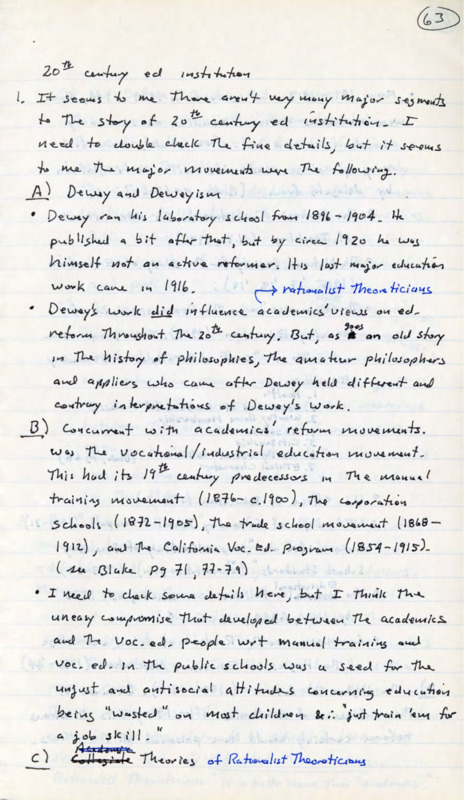 63
20th century ed institution
1. It seems to me there aren't very many major segments
to the story of 20th century ed institution. I
need to double check the fine details, but it seems
to me the major movements were the following.
A) Dewey and Deweyism
• Dewey ran his laboratory school from 1896-1904. He
published a bit after that, but by circa 1920 he was
himself not an active reformer. His last major education
work came in 1916.
→ rationalist theoreticians
• Dewey's work did influence academics' views on ed-
reform throughout the 20th century. But, as goes an old story
in the history of philosophies, the amateur philosophers
and appliers who came after Dewey held different and
contrary interpretations of Dewey's work.
B) Concurrent with academics' reform movements.
was the vocational/industrial education movement.
This had its 19th century predecessors in the manual
training movement (1876- c.1900), the corporation
schools (1872-1905), the trade school movement (1868-
1912), and the California Voc. Ed. program (1854-1915).
(see Blake pg 71, 77-79)
• I need to check some details here, but I think the
uneasy compromise that developed between the academics
and the voc. ed. people wrt manual training and
voc. ed. in the public schools was a seed for the
unjust and antisocial attitudes concerning education
being "wasted" on most children & : "just train 'em for
a job skill."
Academic
C) Collegiate Theories of Rationalist Theoreticians